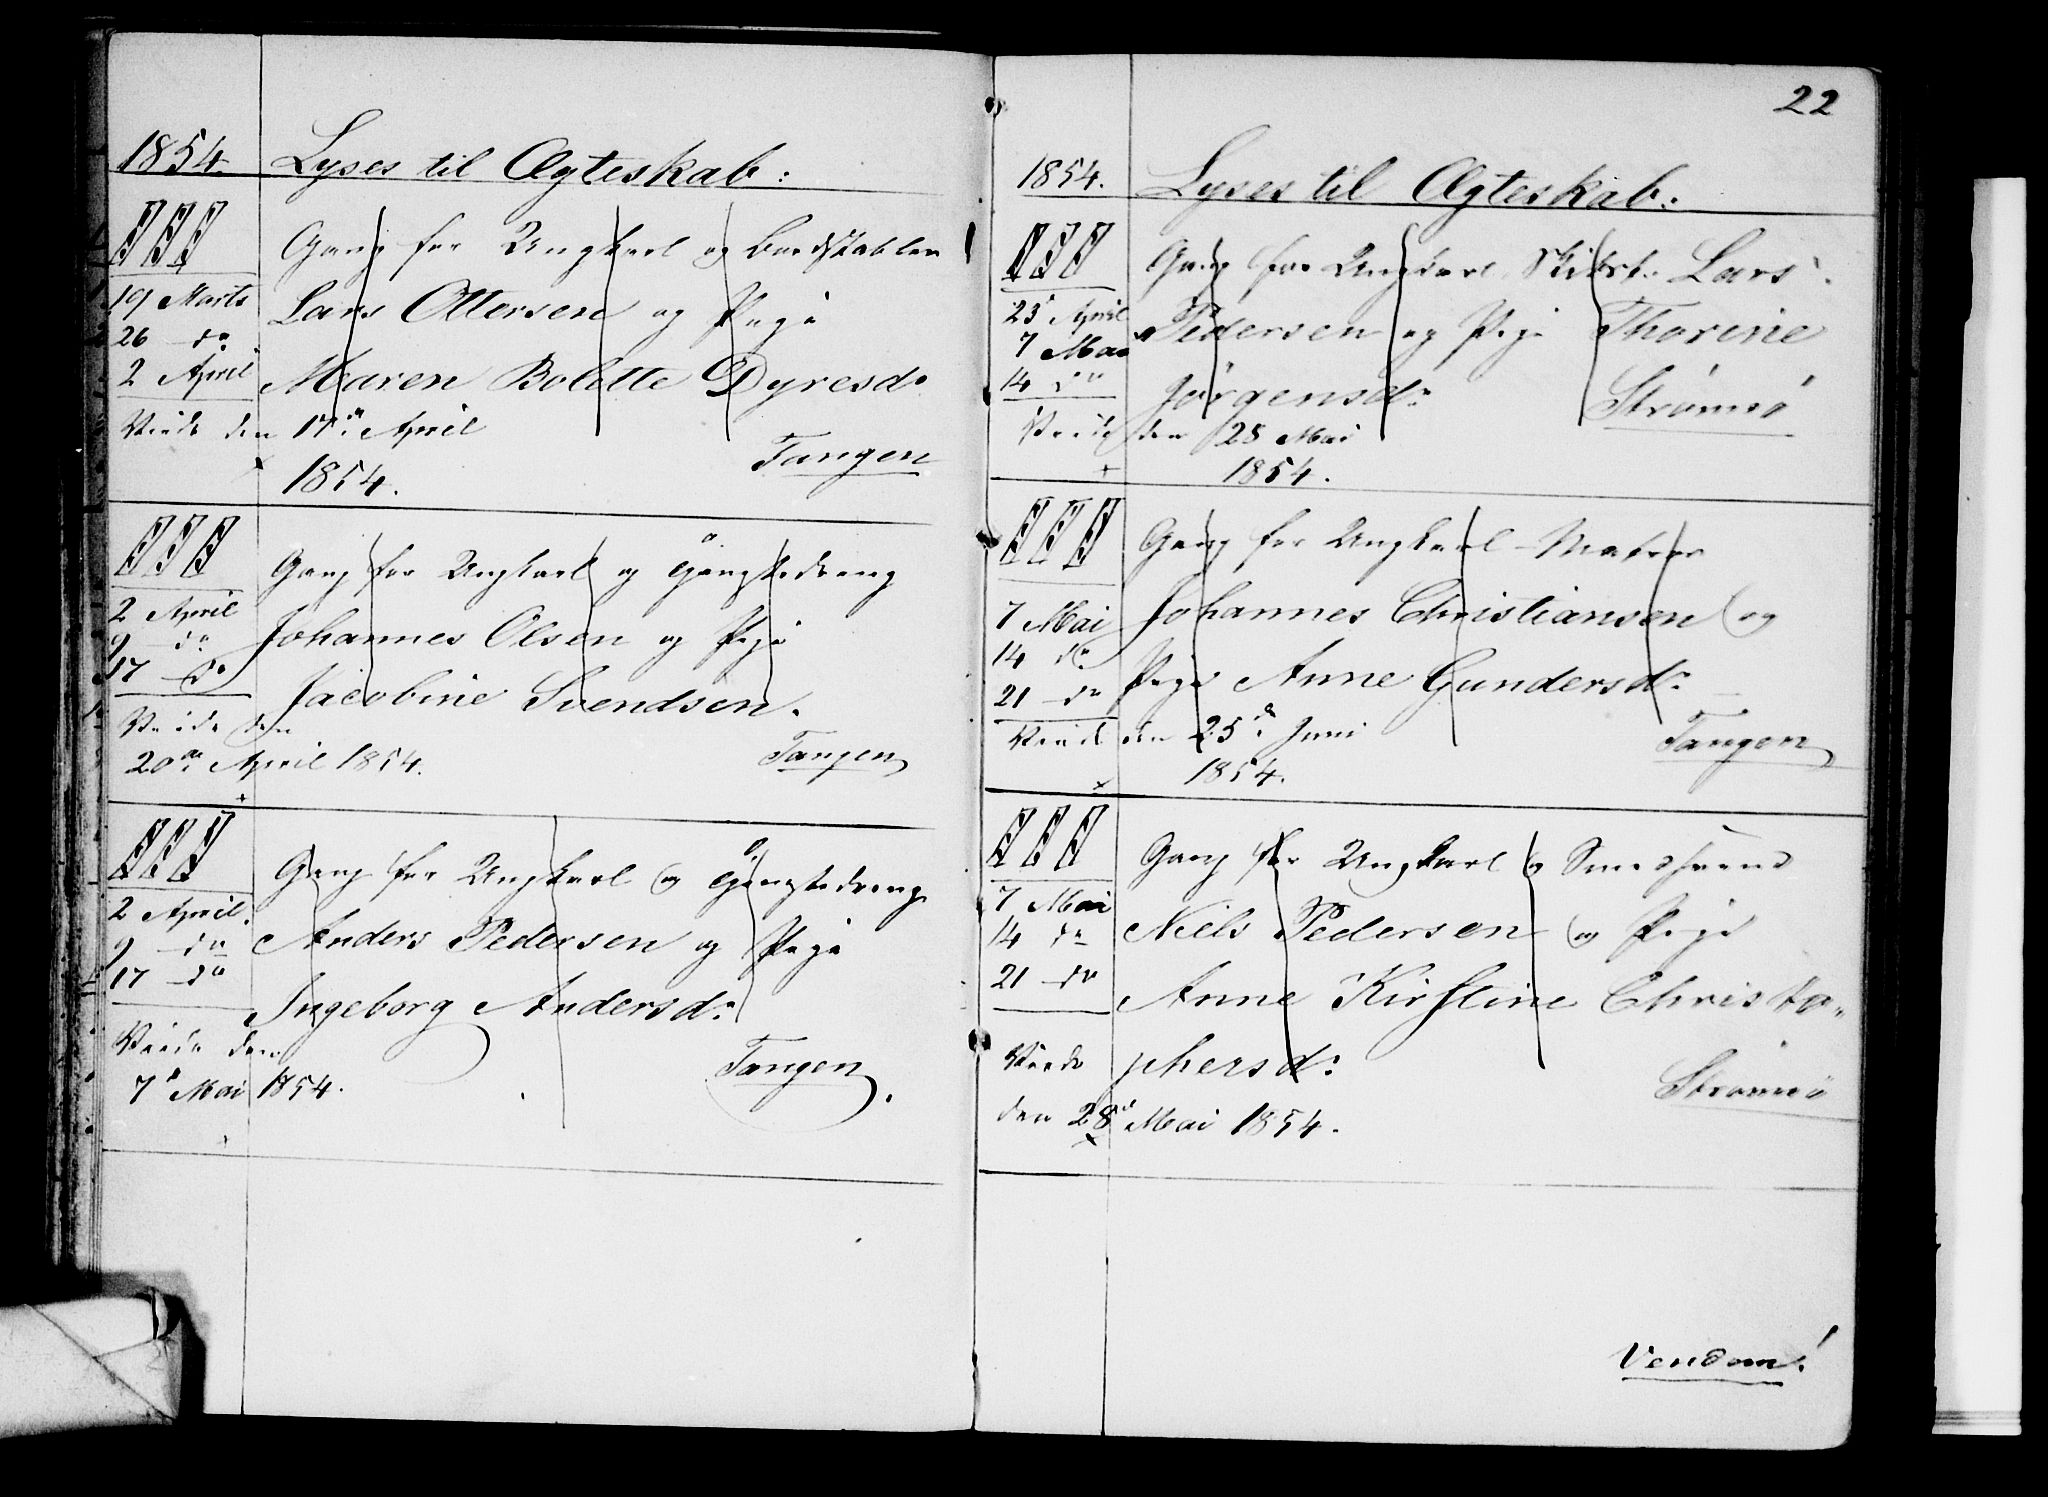 1854. Lyses til Ægteskab:
III Gang for Ungkarl og Bordstabler
19 Marts Lars Ottersen og Pige
26 do
2 April Maren Bolette Dyresd.
Viede den 17de April
1854. Tangen
III Gang for Ungkarl og Gangsedreng
2 April Johannes Olsen og Pige
9 do
17 do Jacobine Svendsen.
Viede den
20de April 1854. Tangen
III Gang for Ungkarl og Gangsedreng
2 April. Anders Pedersen og Pige
9 do
17 do Ingeborg Andersd.
Viede den Tangen.
7de Mai 1854.
22
1854. Lyses til Ægteskab:
III Gang for Ungkarl Lars
23 April Pedersen og Pige Thorine
7 Mai
14 do Jørgensd. Strømsø
Viede den 28 Mai
1854.
III Gang for Ungkarl Matros
7 Mai Johannes Christiansen og
14 do
21 do Pige Anne Gundersd.
Viede den 25de Juni Tangen
1854.
III Gang for Ungkarl og Smedsvend
7 Mai Niels Pedersen og Pige
14 do
21 do Anne Kirstine Christo-
Viede phersd. Strømsø
den 28de Mai 1854.
Vendom!